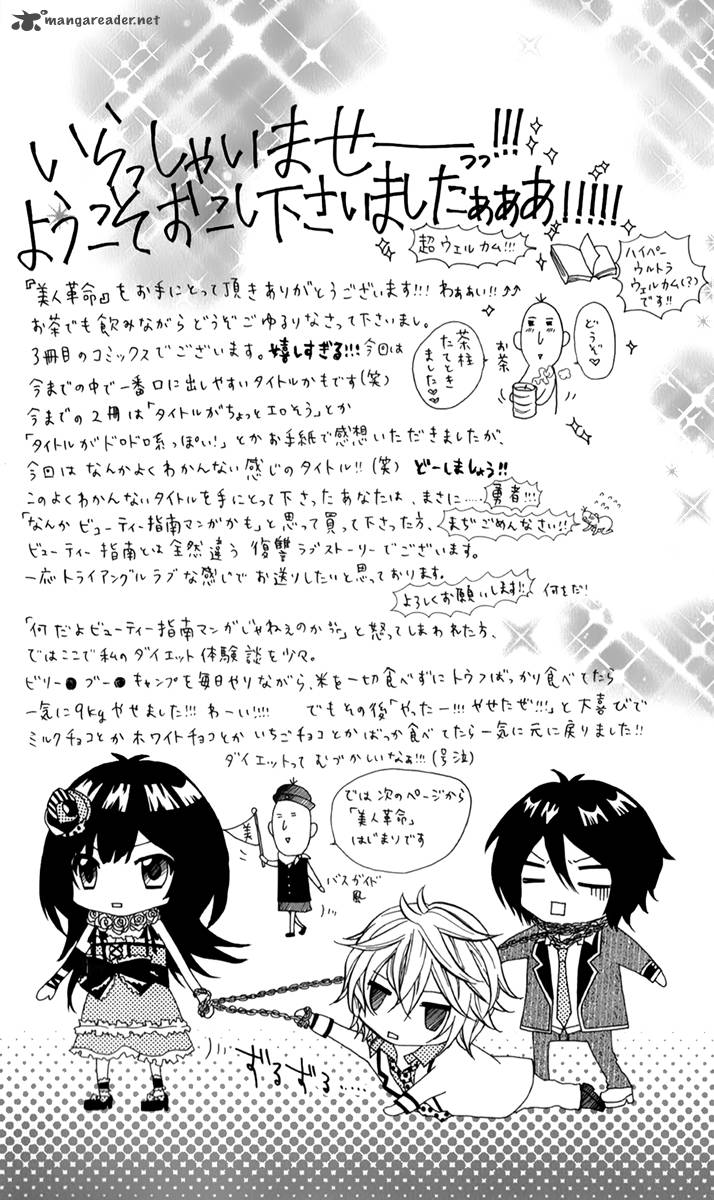 mangareader.net
いらっしゃいませーーっっ!!!
ようこそおこし下さいましたぁぁぁ!!!!!
超ウェルカム!!!
ハイパー
ウルトラ
ウェルカム(?)
です!!
『美人革命』をお手にとって頂きありがとうございます!!! わぁぁい!!↑↑
お茶でも飲みながらどうぞごゆるりなさって下さいまし。
3冊目のコミックスでございます。嬉しすぎる!!! 今回は
今までの中で一番口に出しやすいタイトルかもです(笑)
茶柱
たてとき
ました♡
お茶
どうぞ♡
今までの2冊は「タイトルがちょっとエロそう」とか
「タイトルがドロドロ系っぽい!」とかお手紙で感想いただきましたが、
今回はなんかよくわかんない感じのタイトル!!(笑) どーしましょう!!
このよくわかんないタイトルを手にとって下さったあなたは、まさに……勇者!!!
「なんかビューティー指南マンガかも」と思って買って下さった方、まぢごめんなさい!!
ビューティー指南とは全然違う復讐ラブストーリーでございます。
一応トライアングルラブな感じでお送りしたいと思っております。
よろしくお願いします!! 何をだ!
「何だよビューティー指南マンガじゃねぇのかよ」と怒ってしまわれた方、
ではここで私のダイエット体験談を少々。
ビリー●ブー●キャンプを毎日やりながら、米を一切食べずにトウフばっかり食べてたら
一気に9kgやせました!!! わーい!!!! でもその後「やったー!!! やせたぜ!!!」と大喜びで
ミルクチョコとかホワイトチョコとかいちごチョコとかばっか食べてたら一気に元に戻りました!!
ダイエットってむづかしいなぁ!!!(号泣)
美
では次のページから
「美人革命」
はじまりです
バスガイド
風
ずるずる……